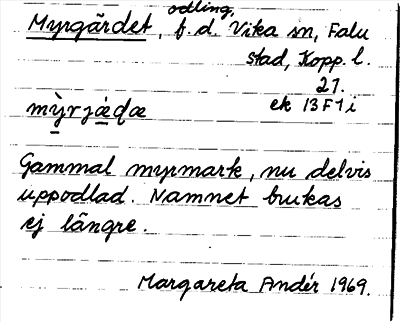 odling,
Myrgärdet, f.d. Vika sn, Falu
stad, Kopp. l.
21.
mỳrjà̱ɖæ ek 13F1i
Gammal myrmark, nu delvis
uppodlad. Namnet brukas
ej längre.
Margareta Andér 1969.